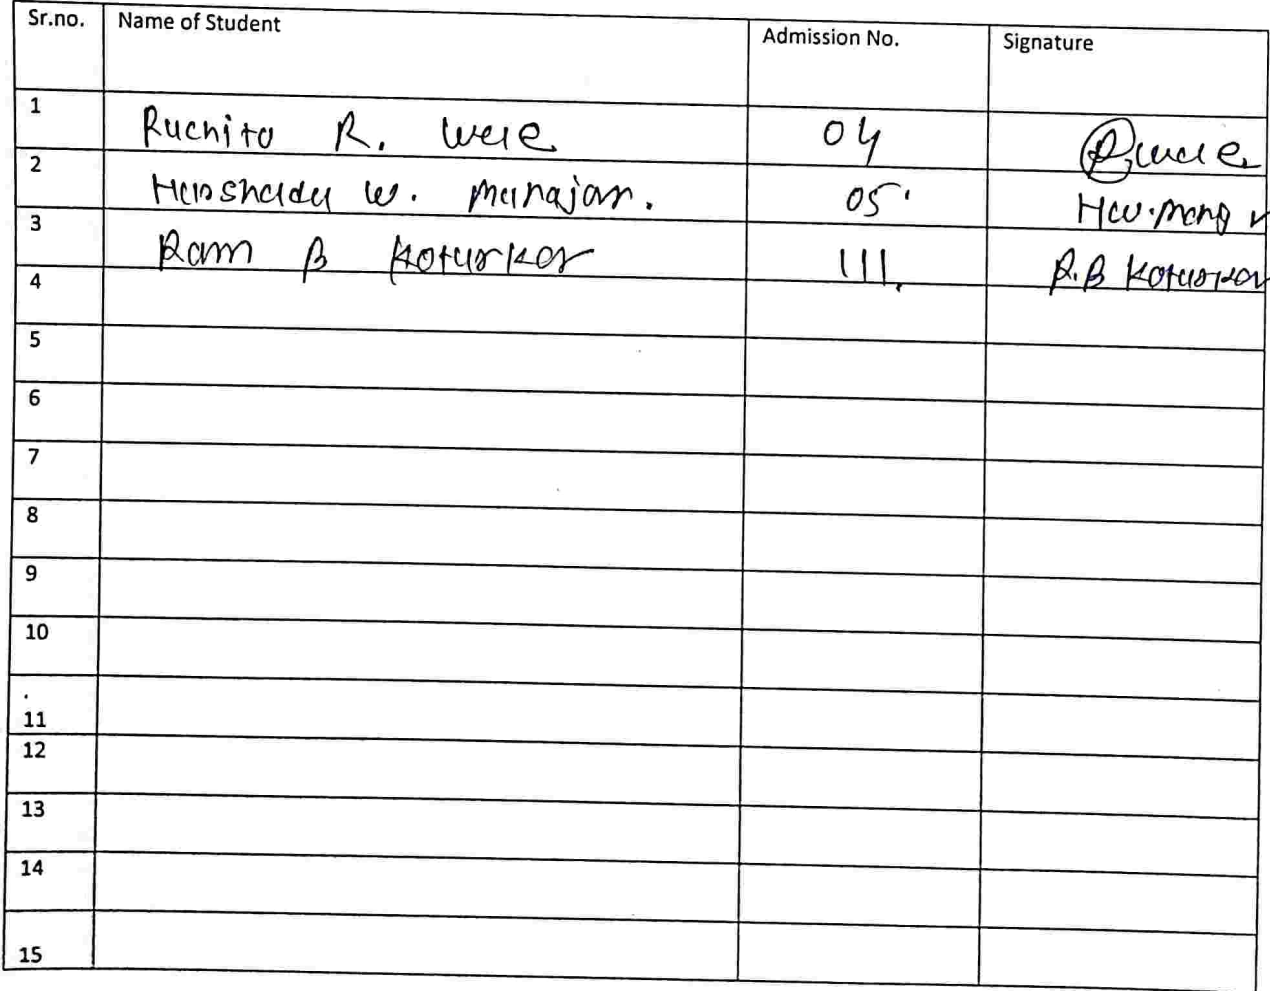 Sr.no. Name of Student Admission No. Signature
1 Ruchita R. 04
2 W. Mahajan. 05
3 Ram B Koturkar 111. R.B Koturkar
4
5
6
7
8
9
10
11
12
13
14
15